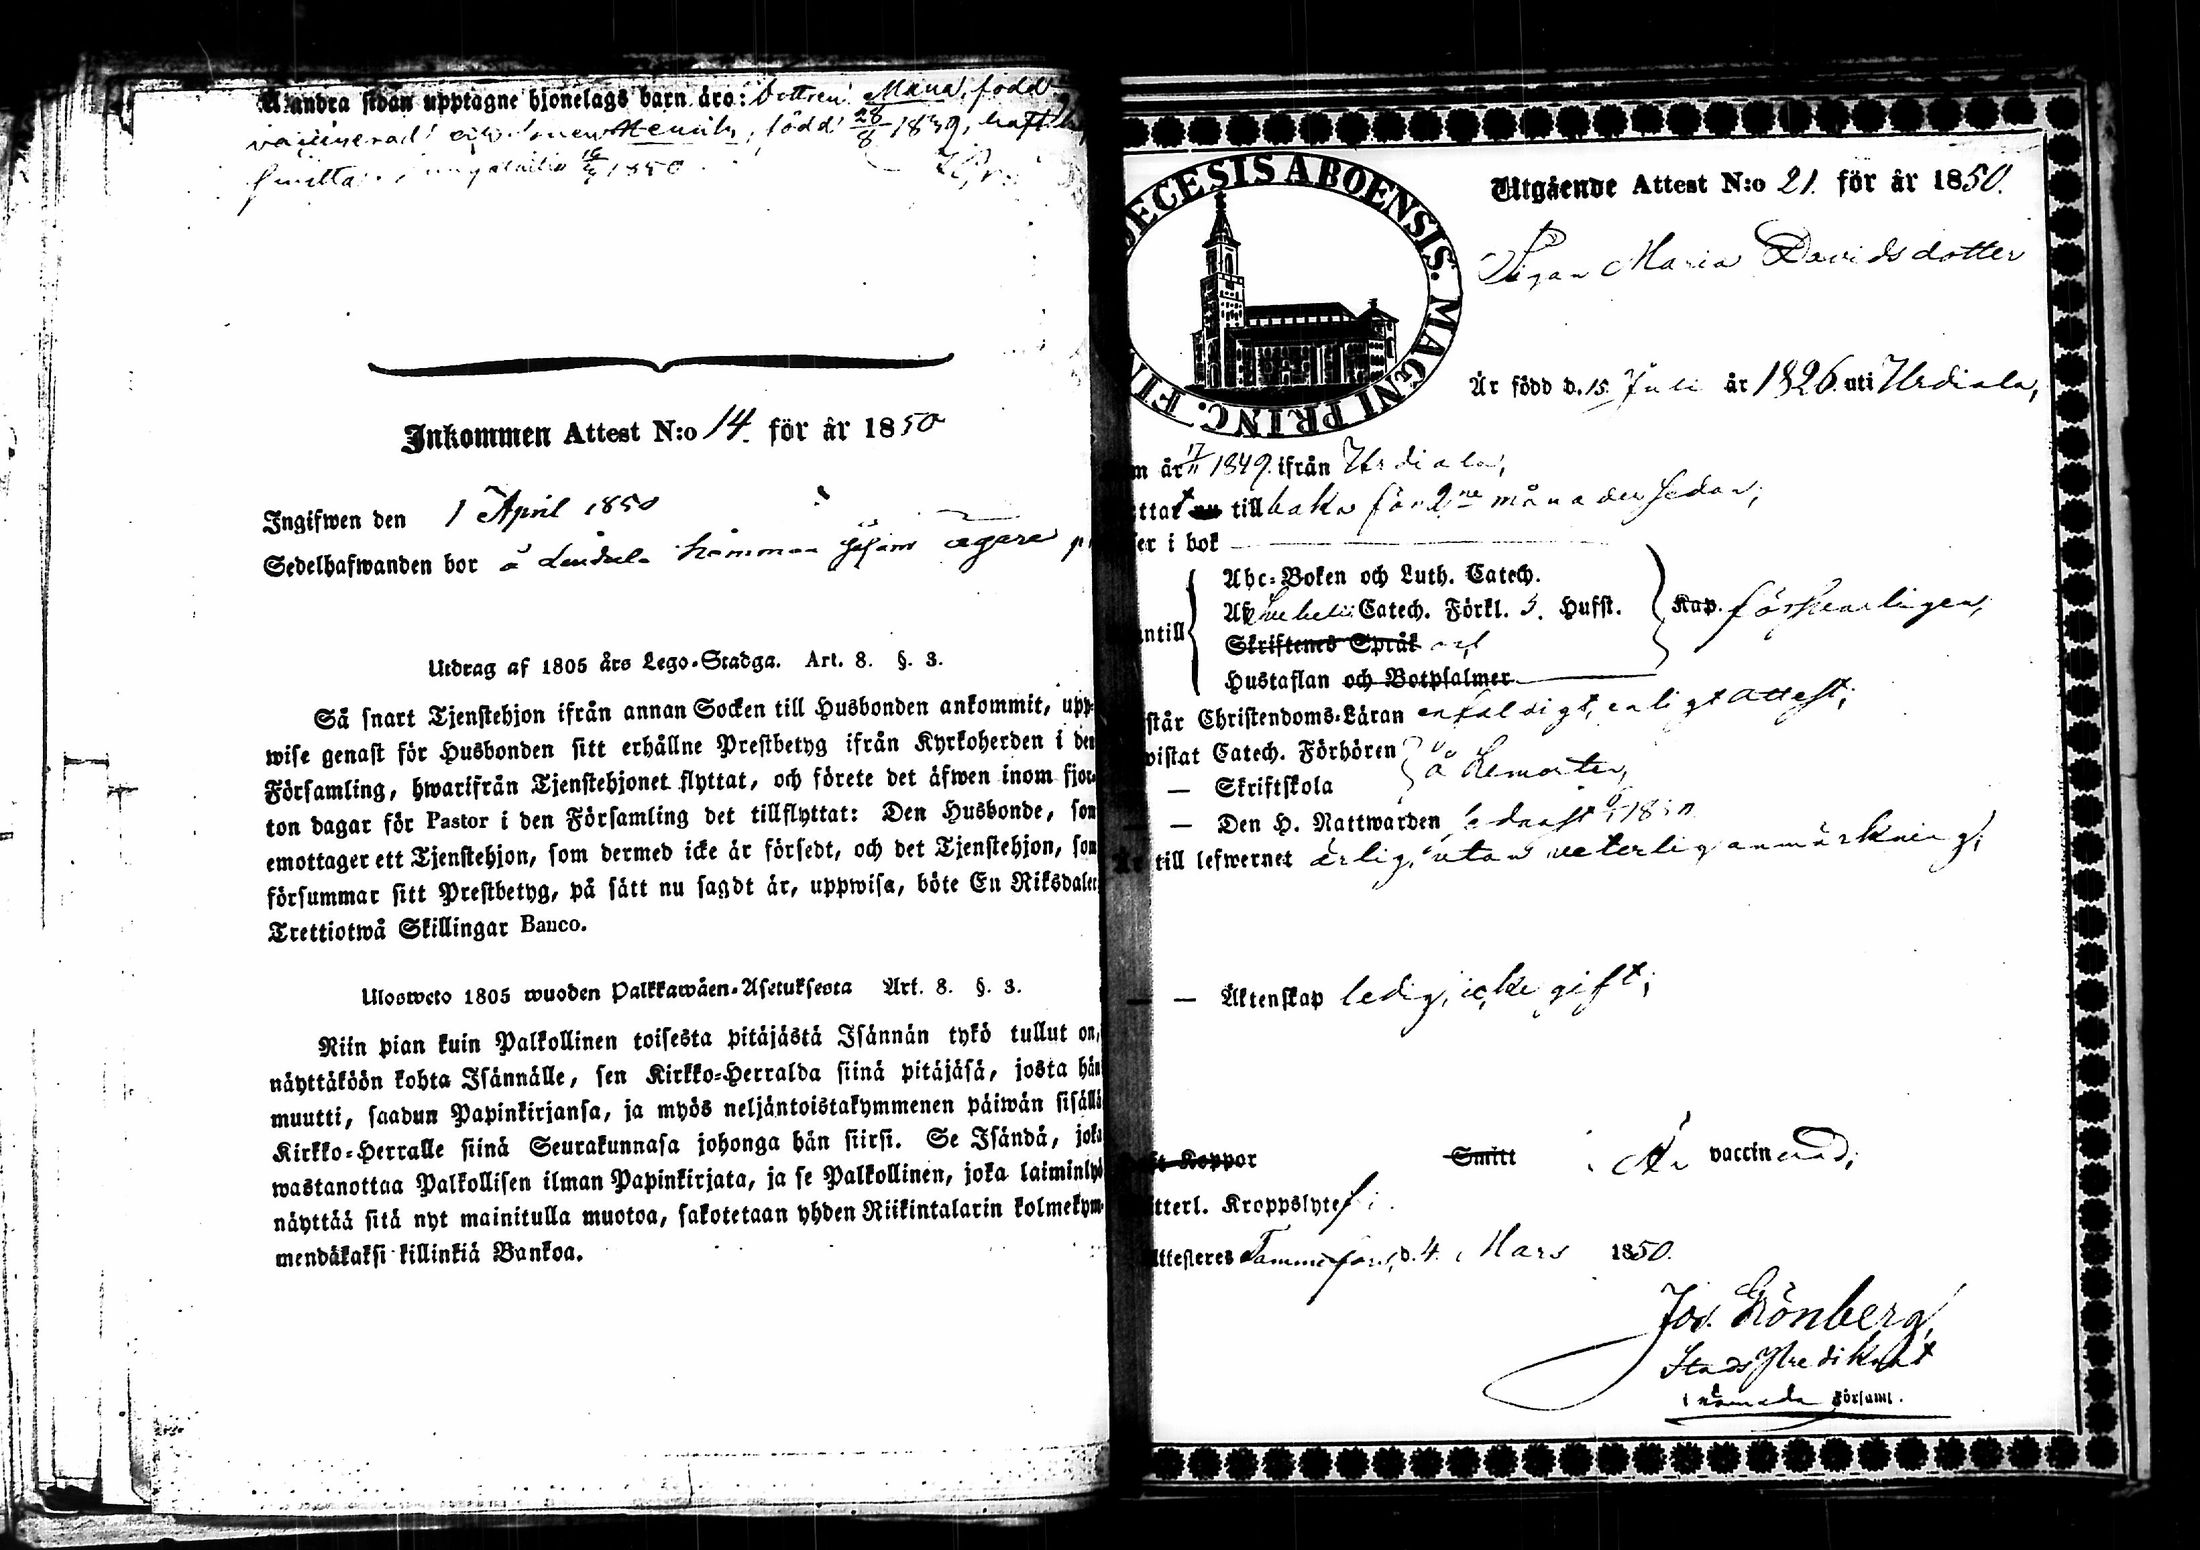 A andra sidan upptagne hjonelags barn äro: Dottren Maria, född
vaccinerad; och sonen Henrik, född 28/8 1839, haft
1850
Inkommen Attest N:o 14. för år 1850
Ingifwen den 1 April 1850
Sedelhafwanden bor å hemman ägare
Utdrag af 1805 års Lego-Stadga. Art. 8. §. 3.
Så snart Tjenstehjon ifrån annan Socken till Husbonden ankommit, upp-
wise genast för Husbonden sitt erhållne Prestbetyg ifrån Kyrkoherden i den
Församling, hwarifrån Tjenstehjonet flyttat, och förete det äfwen inom fjor-
ton dagar för Pastor i den Församling det tillflyttat: Den Husbonde, som
emottager ett Tjenstehjon, som dermed icke är försedt, och det Tjenstehjon, som
försummar sitt Prestbetyg, på sätt nu sagdt är, uppwisa, böte En Riksdaler
Trettiotwå Skillingar Banco.
Ulosweto 1805 wuoden Palkkawäen-Asetuksesta Art. 8. §. 3.
Niin pian kuin Palkollinen toisesta pitäjästä Isännän tykö tullut on,
näyttäköön kohta Isännälle, sen Kirkko-Herralda siinä pitäjäsä, josta hän
muutti, saadun Papinkirjansa, ja myös neljäntoistakymmenen päiwän sisällä
Kirkko-Herralle siinä Seurakunnasa johonga hän siirsi. Se Isändä, joka
wastanottaa Palkollisen ilman Papinkirjata, ja se Palkollinen, joka laiminlyö
näyttää sitä nyt mainitulla muotoa, sakotetaan yhden Riikintalarin kolmekym-
mendäkaksi killinkiä Bankoa.
DECESIS ABOENSIS. MAGNI PRINC. FIN
Utgående Attest N:o 21. för år 1850.
Pigan Maria Davidsdotter
Är född d. 15 Juli år 1826 uti Urdiala,
m år 17/11 1849. ifrån Urdiala,
ttat nu tillbaka för 2ne månader sedan;
er i bok
Abc-Boken och Luth. Catech.
Catech. Förkl. 5. Hufst.
antill
Kap. försvarligen,
Skriftenes Språk och
Hustaflan och Botpsalmer
står Christendoms-Läran enfaldigt, enligt attest;
wistat Catech. Förhören
å hemorten,
— Skriftskola
— — Den H. Nattwarden sednast 1850
Är till lefwernet ärlig, utan veterlig anmärkning;
— — Äktenskap ledig, icke gift;
ft Koppor Smitt Är vaccinerad;
tterl. Kroppslyte fri.
Attesteres Tammerfors, d. 4. Mars 1850.
Jos. Grönberg,
Stads Predikant
i nämnda Församl.